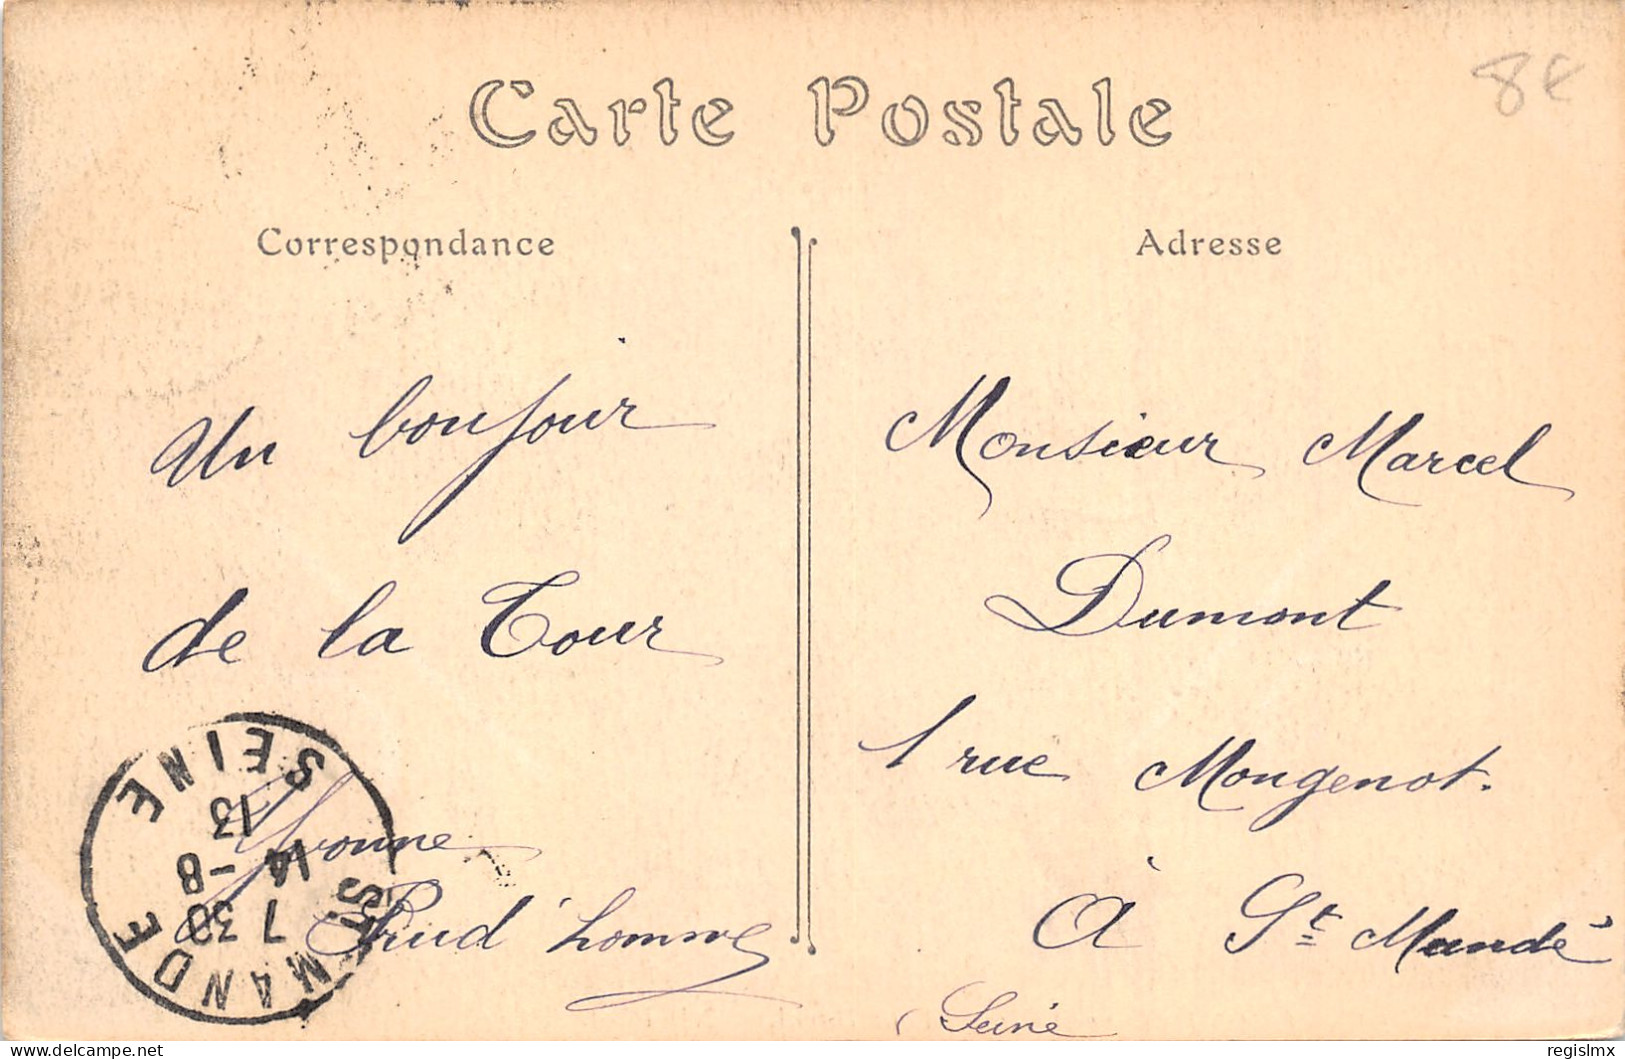 Carte Postale
8€
Correspondance
Adresse
Un bonjour
de la Tour
Yvonne
Prud'homme
Monsieur Marcel
Dumont
1 rue Mougenot.
à St Mandé
Seine
ST MANDE
SEINE
7 30
14 -8
13
delcampe.net
regislmx